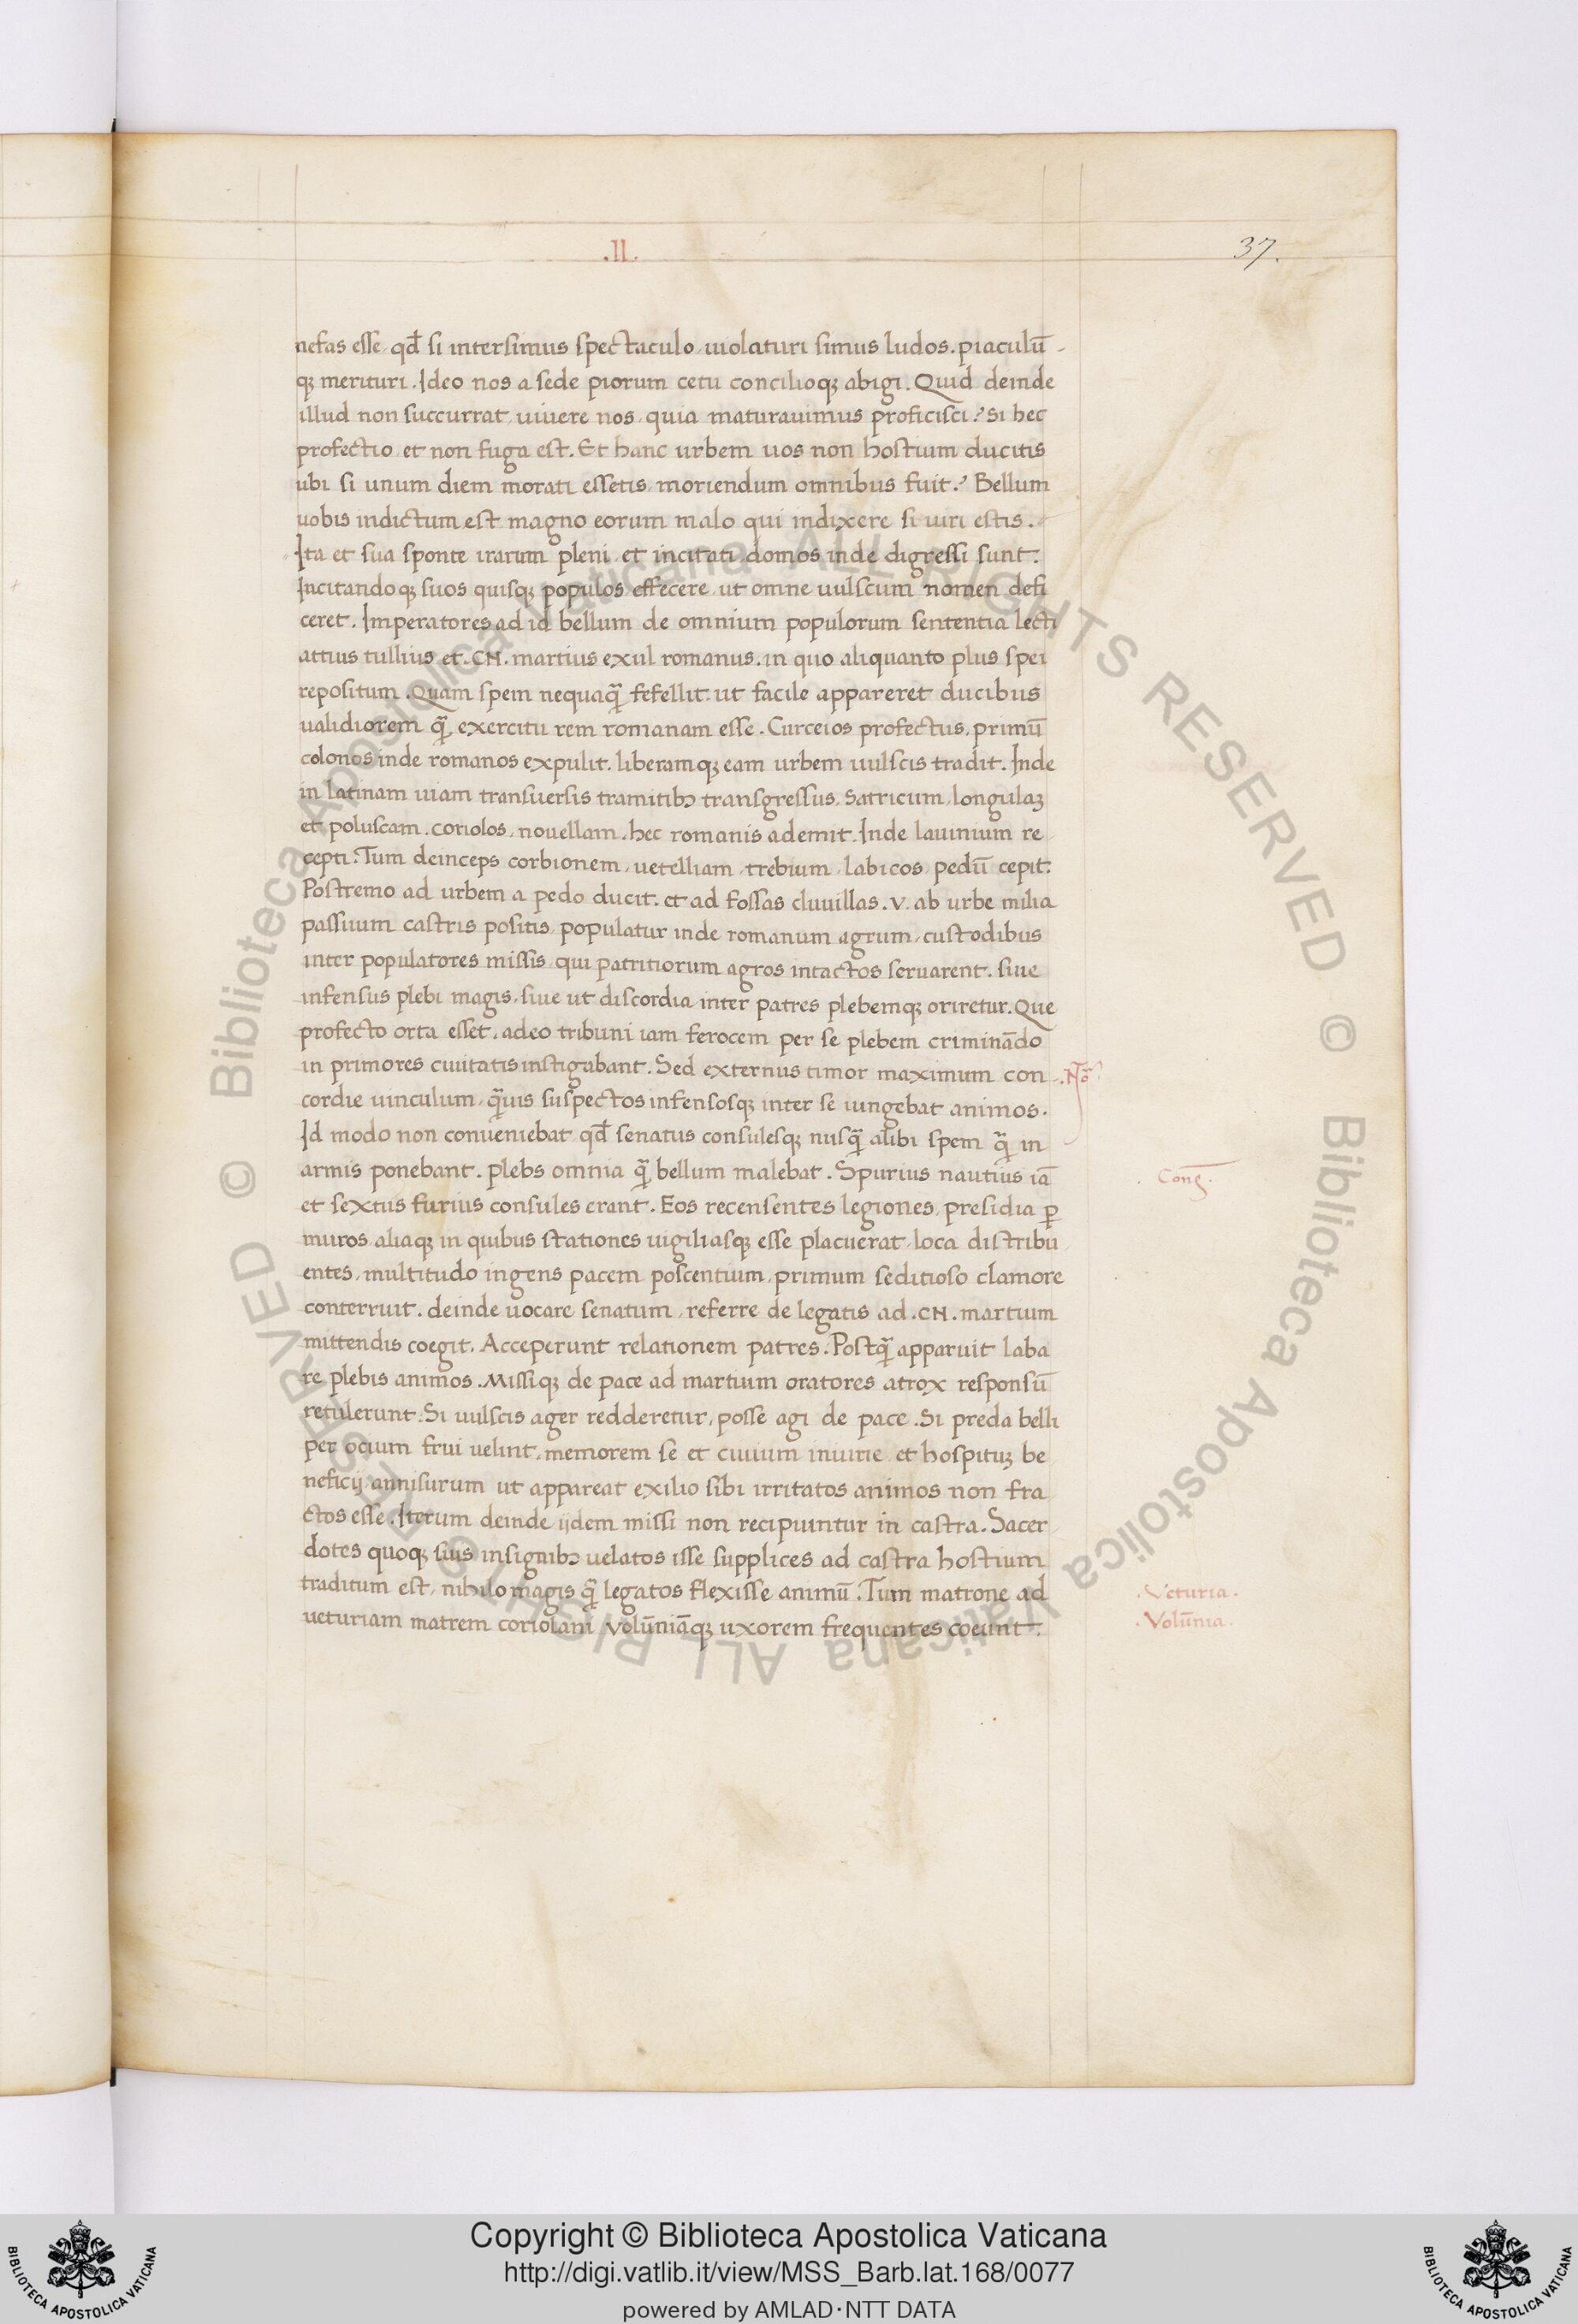 .II.
37.
nefas esse, qđ si intersimus spectaculo, uiolaturi simus ludos. piaculū
qꝫ merituri. Ideo nos a sede piorum cetu concilioqꝫ abigi. Quid deinde
illud non succurrat, uiuere nos, quia maturauimus proficisci? Si hec
profectio et non fuga est. Et hanc urbem uos non hostium ducitis
ubi si unum diem morati essetis, moriendum omnibus fuit? Bellum
uobis indictum est magno eorum malo qui indixere si uiri estis.
Ita et sua sponte irarum pleni, et incitati domos inde digressi sunt.
Incitandoqꝫ suos quisqꝫ populos effecere, ut omne uulscum nomen defi
ceret. Imperatores ad id bellum de omnium populorum sententia lecti
attius tullius et .CN. martius exul romanus. in quo aliquanto plus spei
repositum. Quam spem nequaq̄ fefellit. ut facile appareret ducibus
ualidiorem q̄ exercitu rem romanam esse. Curceios profectus, primū
colonos inde romanos expulit. liberamqꝫ eam urbem uulscis tradit. Inde
in latinam uiam transuersis tramitibꝰ transgressus, Satricum, longulaꝫ
et poluscam. coriolos, nouellam. hec romanis ademit. Inde lauinium re
cepti. Tum deinceps corbionem, uetelliam, trebium, labicos, pedū cepit.
Postremo ad urbem a pedo ducit. et ad fossas cluuillas .v. ab urbe milia
passuum castris positis, populatur inde romanum agrum, custodibus
inter populatores missis, qui patritiorum agros intactos seruarent. siue
infensus plebi magis, siue ut discordia inter patres plebemqꝫ oriretur. Que
profecto orta esset. adeo tribuni iam ferocem per se plebem criminādo
in primores ciuitatis instigabant. Sed externus timor maximum con
.Nō.
cordie uinculum, q̄uis suspectos infensosqꝫ inter se iungebat animos.
Id modo non conueniebat qđ senatus consulesqꝫ nusq̄ alibi spem q̄ in
armis ponebant. plebs omnia q̄ bellum malebat. Spurius nautius iā
. Conꝭ.
et sextus furius consules erant. Eos recensentes legiones, presidia ꝑ
muros aliaqꝫ in quibus stationes uigiliasqꝫ esse placuerat, loca distribu
entes, multitudo ingens pacem poscentium, primum seditioso clamore
conterruit. deinde uocare senatum, referre de legatis ad .CN. martium
mittendis coegit. Acceperunt relationem patres. Postq̄ apparuit laba
re plebis animos. Missiqꝫ de pace ad martium oratores atrox responsū
retulerunt. Si uulscis ager redderetur, posse agi de pace. Si preda belli
per ocium frui uelint, memorem se et ciuium iniurie et hospituꝫ be
neficij, annisurum ut appareat exilio sibi irritatos animos non fra
ctos esse. Iterum deinde ijdem missi non recipiuntur in castra. Sacer
dotes quoqꝫ suis insignibꝰ uelatos isse supplices ad castra hostium
traditum est, nihilo magis q̄ legatos flexisse animū. Tum matrone ad
. Veturia.
ueturiam matrem coriolani uolūniāqꝫ uxorem frequentes coeunt.
. Volūnia.
© Biblioteca Apostolica Vaticana ALL RIGHTS RESERVED © Biblioteca Apostolica Vaticana ALL RIGHTS RESERVED
BIBLIOTECA APOSTOLICA VATICANA
Copyright © Biblioteca Apostolica Vaticana
http://digi.vatlib.it/view/MSS_Barb.lat.168/0077
powered by AMLAD·NTT DATA
BIBLIOTECA APOSTOLICA VATICANA